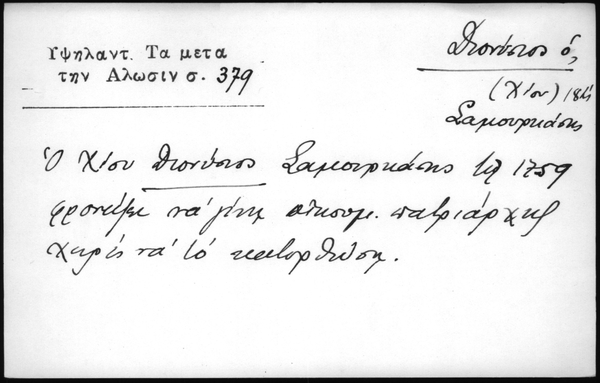 Υψηλαντ. Τα μετα
την Αλωσιν σ. 379
Διονύσιος ὁ,
(Χίου) 18
Σαμουρκάσης
Ὁ Χίου Διονύσιος Σαμουρκάσης τῷ 1759
νὰ γίνῃ οἰκουμ. πατριάρχης
χωρὶς νὰ τὸ κατορθώσῃ.